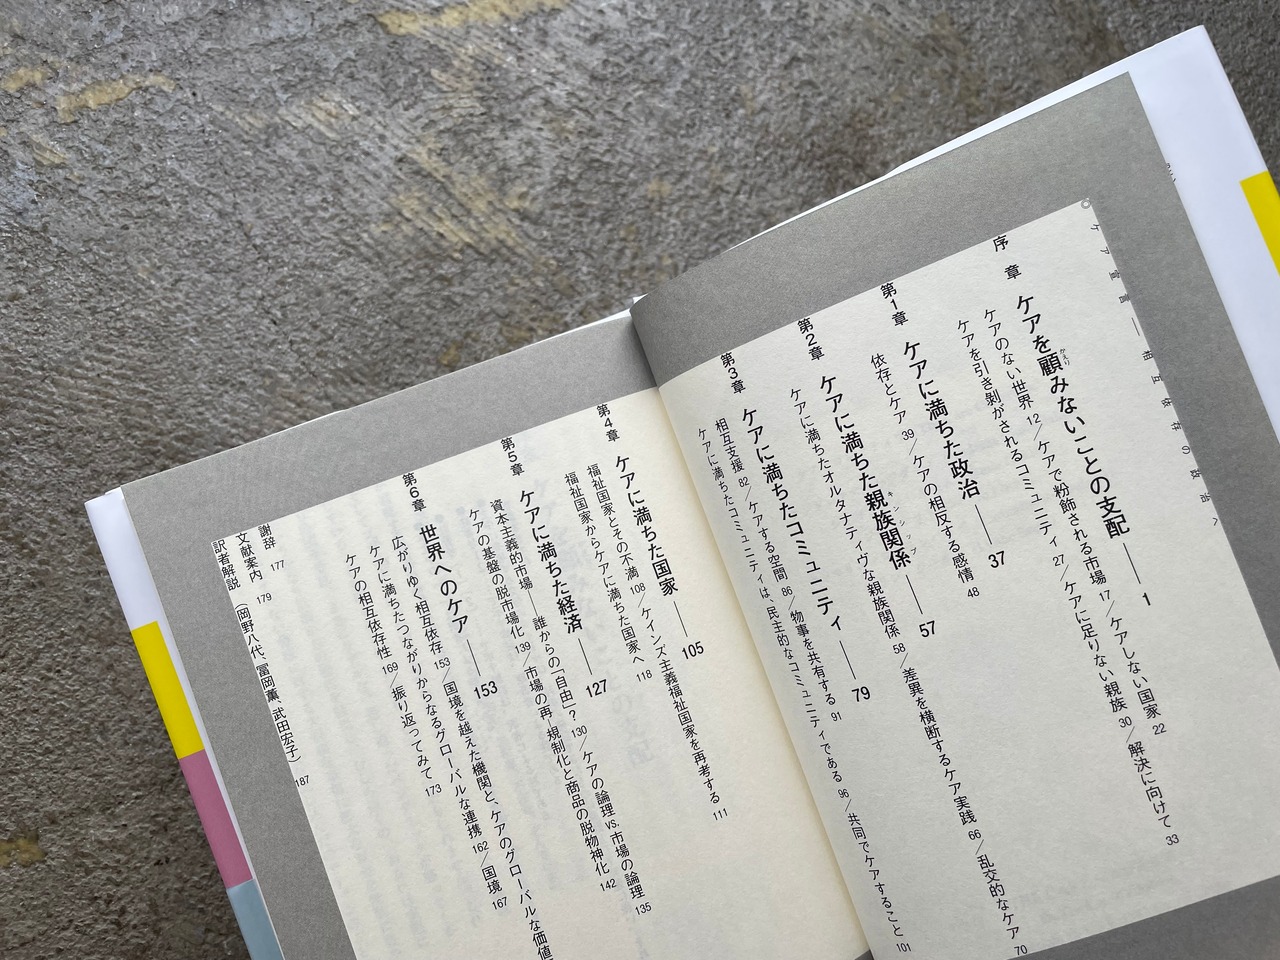 ケア宣言――相互依存の政治へ
序章 ケアを顧みないことの支配――1
かえり
ケアのない世界 12／ケアで粉飾される市場 17／ケアしない国家 22
ケアを引き剥がされるコミュニティ 27／ケアに足りない親族 30／解決に向けて 33
第1章 ケアに満ちた政治――37
依存とケア 39／ケアの相反する感情 48
第2章 ケアに満ちた親族関係――57
キンシップ
ケアに満ちたオルタナティヴな親族関係 58／差異を横断するケア実践 66／乱交的なケア 70
第3章 ケアに満ちたコミュニティ――79
相互支援 82／ケアする空間 86／物事を共有する 91
ケアに満ちたコミュニティは、民主的なコミュニティである 96／共同でケアすること 101
第4章 ケアに満ちた国家――105
福祉国家とその不満 108／ケインズ主義福祉国家を再考する 111
福祉国家からケアに満ちた国家へ 118
第5章 ケアに満ちた経済――127
資本主義的市場――誰からの「自由」？ 130／ケアの論理 vs. 市場の論理 135
ケアの基盤の脱市場化 139／市場の再―規制化と商品の脱物神化 142
第6章 世界へのケア――153
広がりゆく相互依存 153／国境を越えた機関と、ケアのグローバルな価値
ケアに満ちたつながりからなるグローバルな連携 162／国境 167
ケアの相互依存性 169／振り返ってみて 173
謝辞 177
文献案内 179
訳者解説（岡野八代、冨岡薫、武田宏子） 187